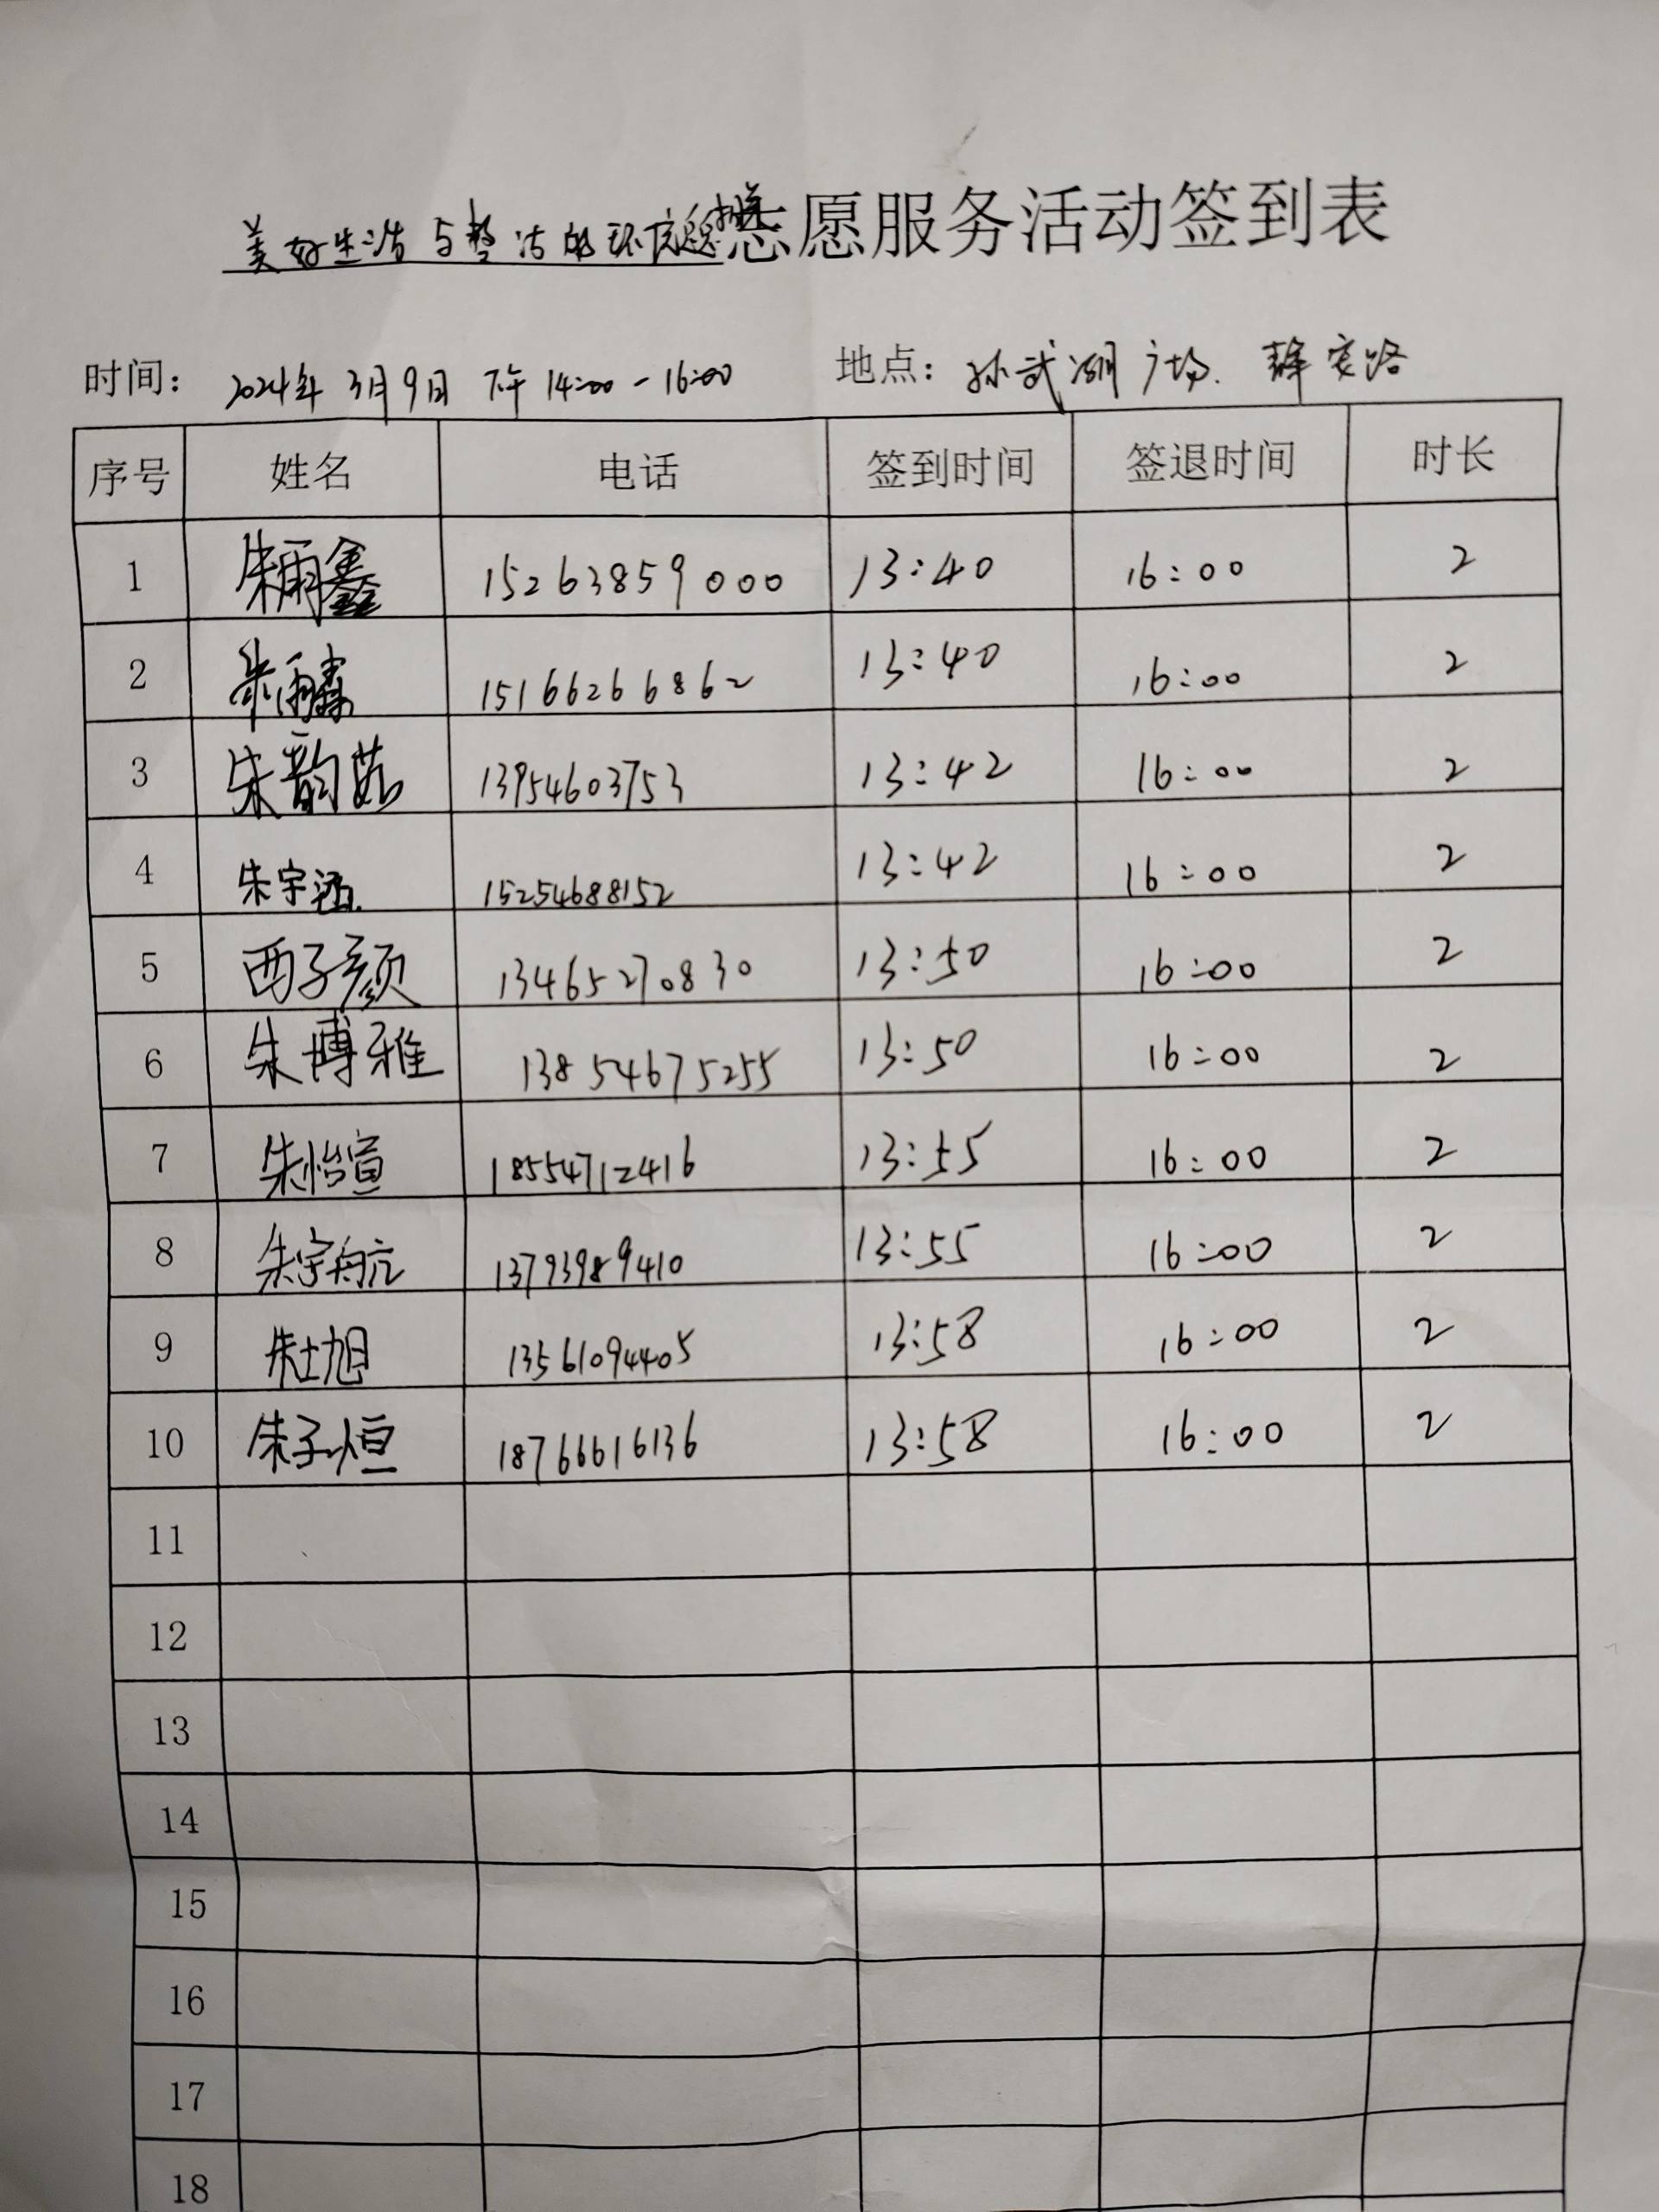 美好生活与整洁的环境 志愿服务活动签到表
时间: 2024年3月9日 下午14:00-16:00 地点: 孙武湖广场. 薛家路
序号 姓名 电话 签到时间 签退时间 时长
1 朱雨鑫 15263859000 13:40 16:00 2
2 朱雨霖 15166266862 13:40 16:00 2
3 朱韵茹 13954603753 13:42 16:00 2
4 朱宇涵 15254688152 13:42 16:00 2
5 西子颜 13465270830 13:50 16:00 2
6 朱博雅 13854675255 13:50 16:00 2
7 朱怡宣 18554712416 13:55 16:00 2
8 朱宇航 13793989410 13:55 16:00 2
9 朱士旭 13561094405 13:58 16:00 2
10 朱子恒 18766616136 13:58 16:00 2
11
12
13
14
15
16
17
18